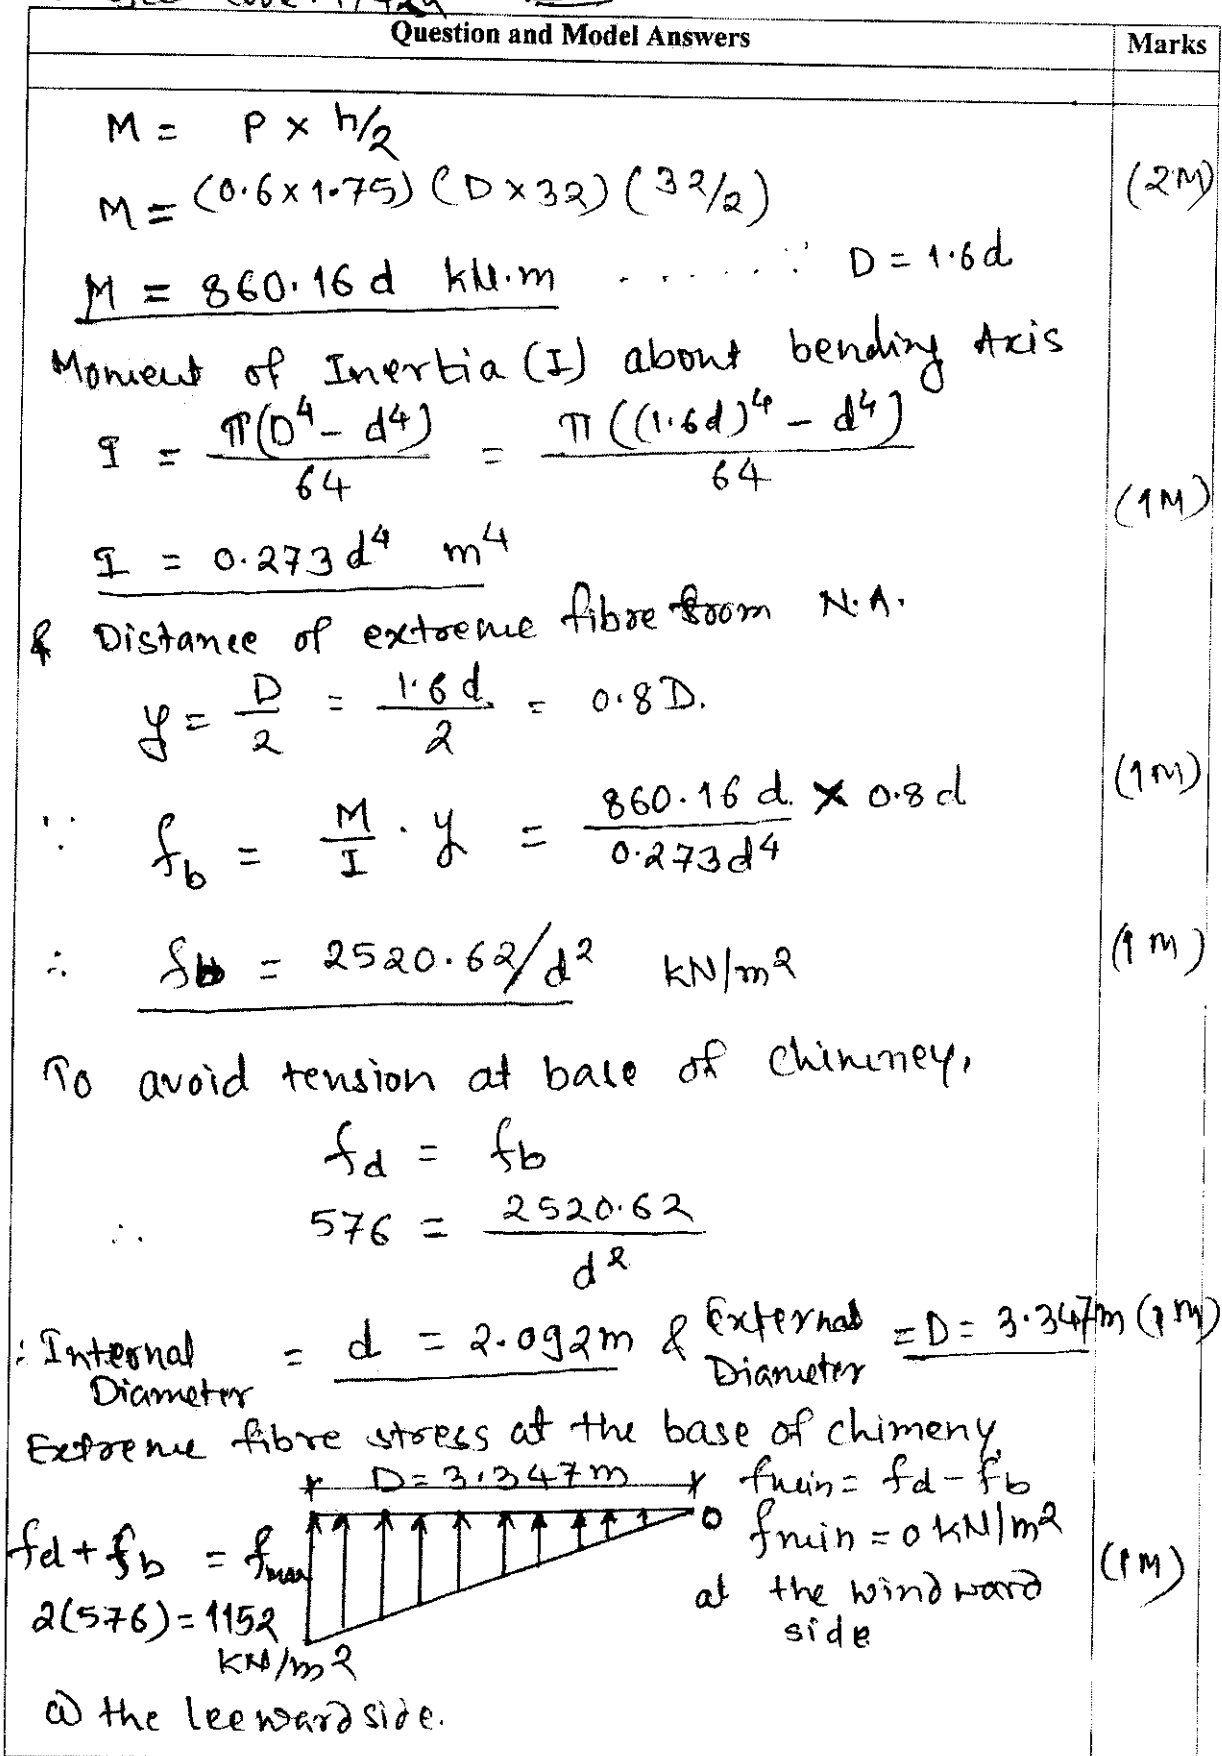 Question and Model Answers Marks
M = P x h/2
M = (0.6 x 1.75) (D x 32) (32/2) (2M)
M = 860.16 d kN.m ...... ∵ D = 1.6d
Moment of Inertia (I) about bending Axis
I = π(D⁴ - d⁴)/64 = π((1.6d)⁴ - d⁴)/64
(1M)
I = 0.273 d⁴ m⁴
& Distance of extreme fibre from N.A.
y = D/2 = 1.6d/2 = 0.8D.
(1M)
∵ fb = M/I . y = 860.16 d./0.273d⁴ x 0.8d
∴ fb = 2520.62/d² kN/m² (1M)
To avoid tension at base of chimney,
fd = fb
∴ 576 = 2520.62/d²
∴ Internal Diameter = d = 2.092m & External Diameter = D = 3.347m (1M)
Extreme fibre stress at the base of chimeny,
D = 3.347m fmin = fd - fb
fd + fb = fmax 0 fmin = 0 kN/m²
(1M)
2(576) = 1152 at the windward
side
KN/m²
@ the leeward side.